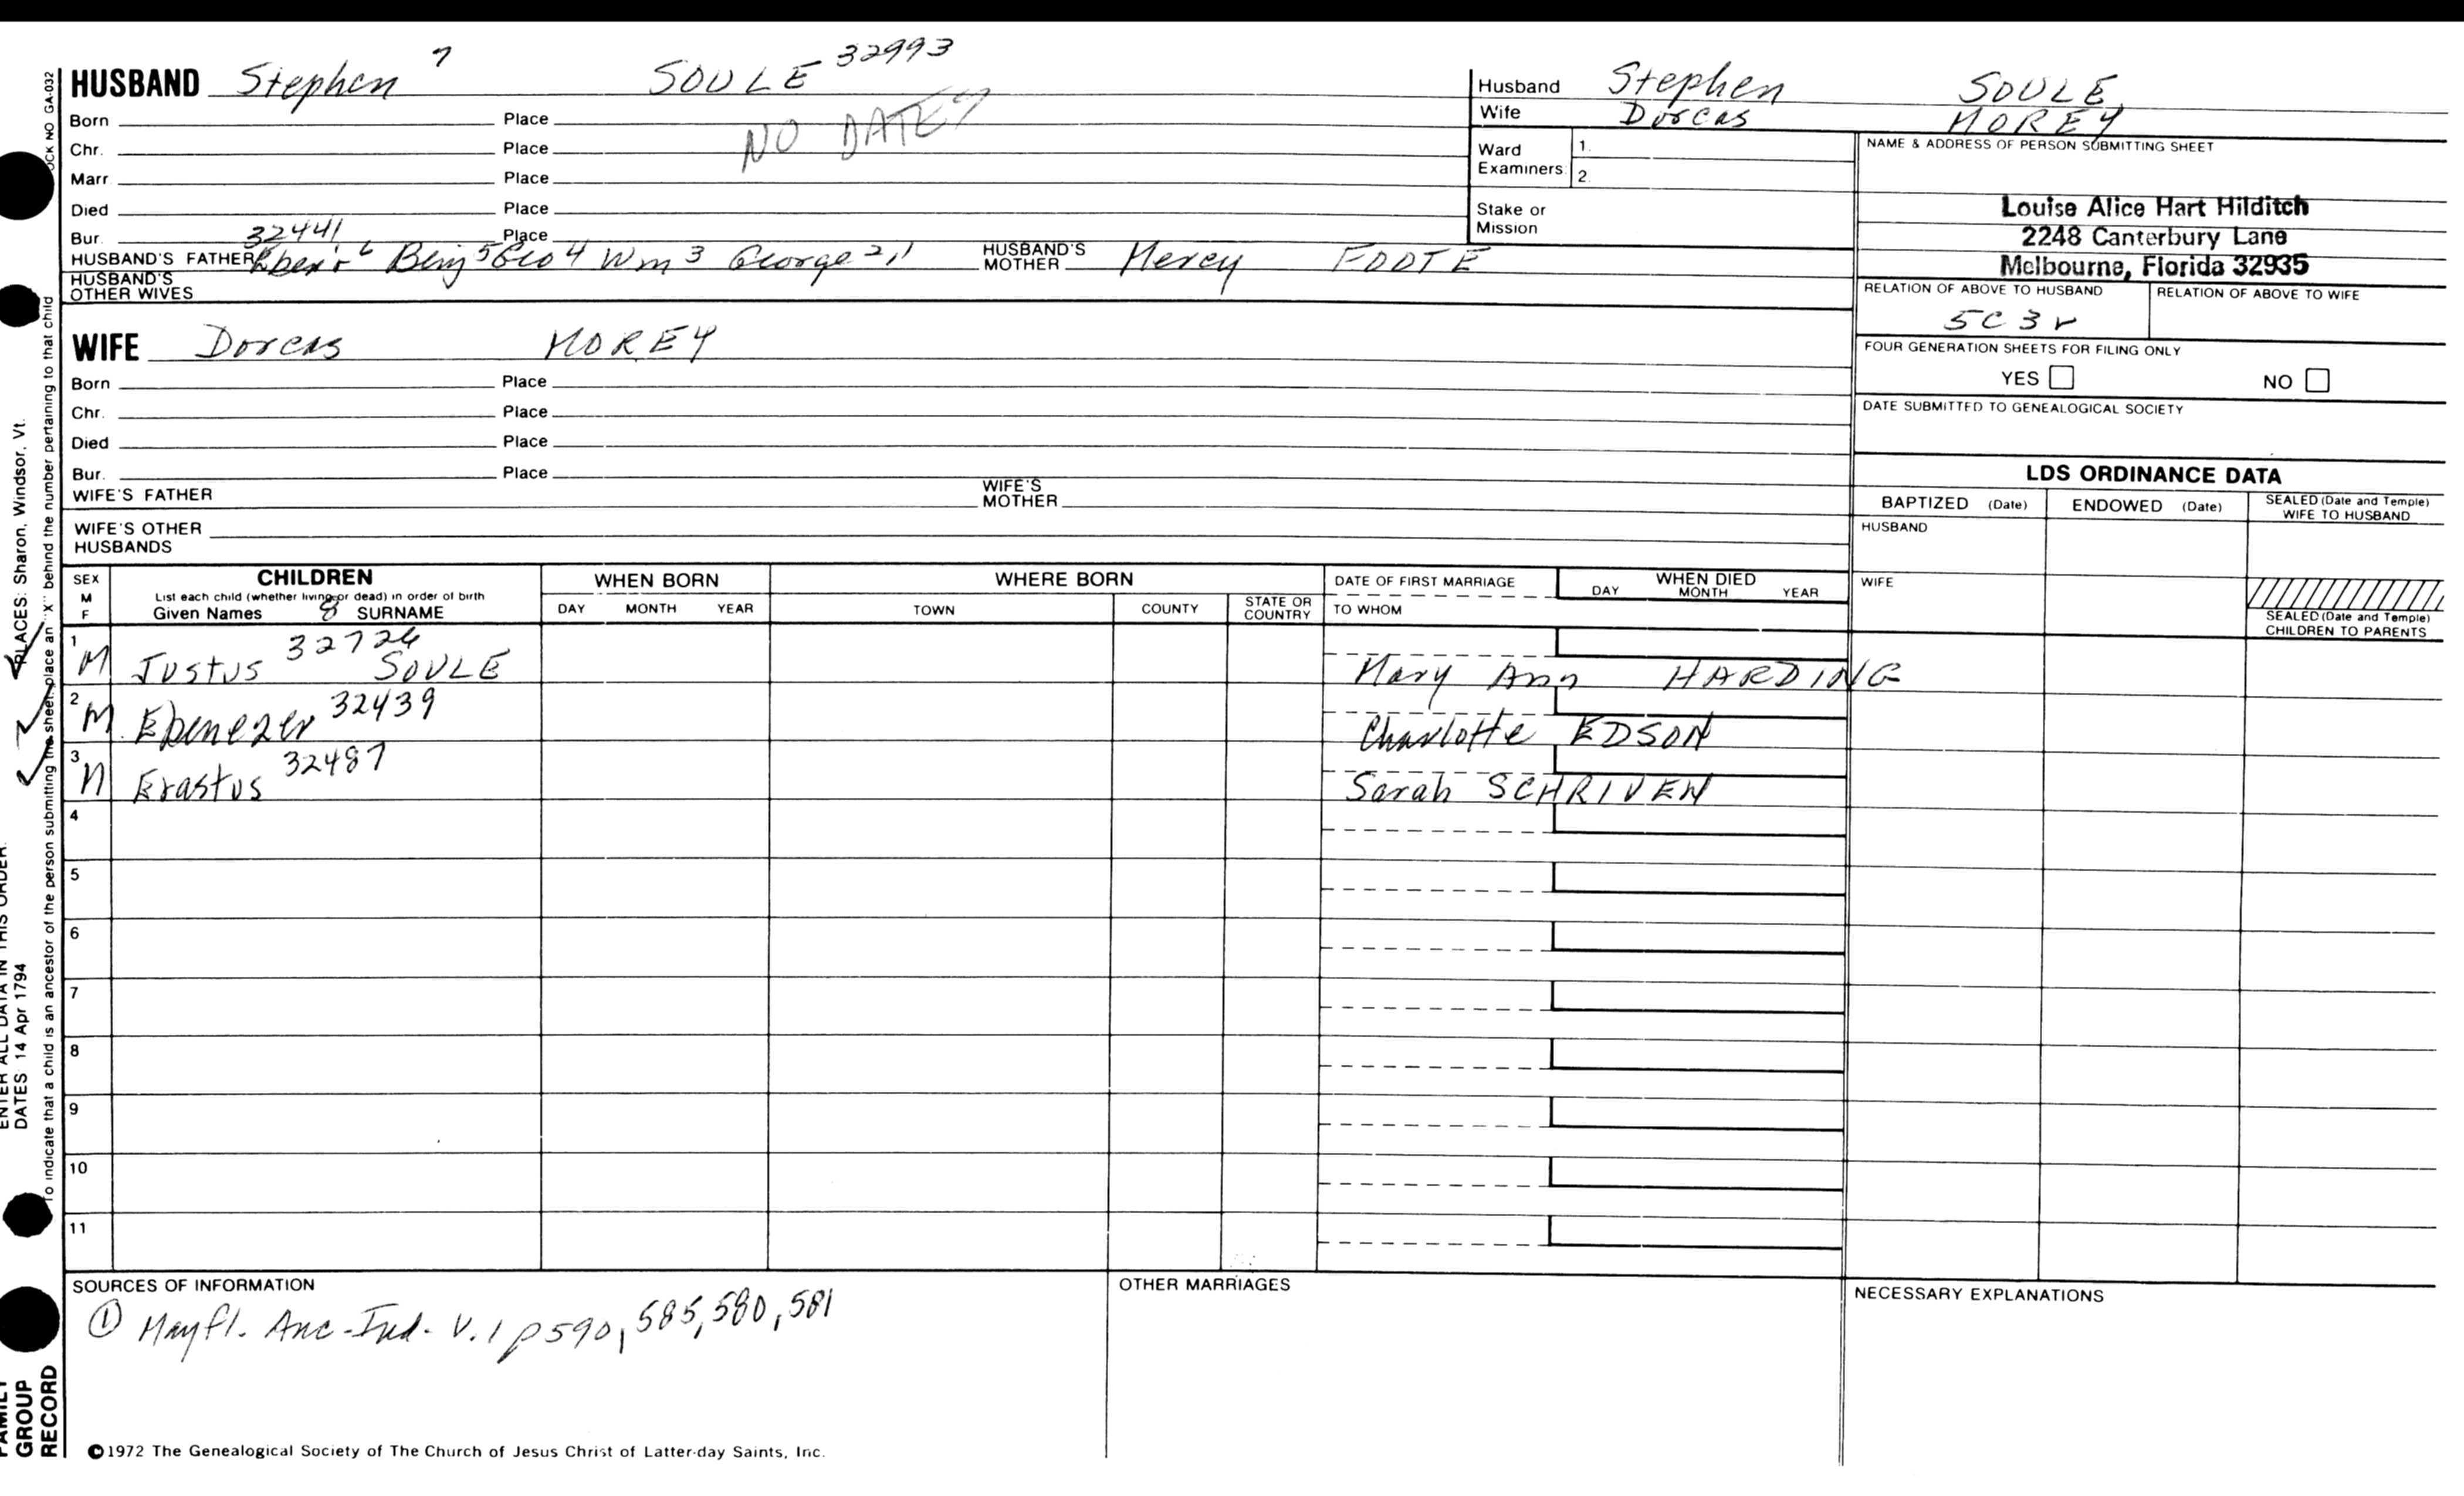 HUSBAND Stephen 7 SOULE 32993
Born Place NO DATES
Chr. Place
Marr Place
Died Place
Bur. 32441 Place
HUSBAND'S FATHER Eben'r 6 Benj 5 Geo 4 Wm 3 George 2,1 HUSBAND'S MOTHER Mercy FOOTE
HUSBAND'S OTHER WIVES
Husband Stephen SOULE,
Wife Dorcas MOREY
Ward Examiners: 1. 2.
Stake or Mission
NAME & ADDRESS OF PERSON SUBMITTING SHEET
Louise Alice Hart Hilditch
2248 Canterbury Lane
Melbourne, Florida 32935
RELATION OF ABOVE TO HUSBAND RELATION OF ABOVE TO WIFE
5C3r
FOUR GENERATION SHEETS FOR FILING ONLY
YES NO
DATE SUBMITTED TO GENEALOGICAL SOCIETY
WIFE Dorcas MOREY
Born Place
Chr. Place
Died Place
Bur. Place
WIFE'S FATHER WIFE'S MOTHER
WIFE'S OTHER HUSBANDS
LDS ORDINANCE DATA
BAPTIZED (Date) ENDOWED (Date) SEALED (Date and Temple) WIFE TO HUSBAND
HUSBAND
WIFE
SEALED (Date and Temple) CHILDREN TO PARENTS
SEX M F
CHILDREN
List each child (whether living or dead) in order of birth
Given Names 8 SURNAME
WHEN BORN
DAY MONTH YEAR
WHERE BORN
TOWN COUNTY STATE OR COUNTRY
DATE OF FIRST MARRIAGE
TO WHOM
WHEN DIED
DAY MONTH YEAR
1 M Justus 32726 SOULE Mary Ann HARDING
2 M Ebenezer 32439 Charlotte EDSON
3 M Erastus 32487 Sarah SCHRIVEN
4
5
6
7
8
9
10
11
SOURCES OF INFORMATION
① Mayfl. Anc-Ind. V.1 p590, 585, 580, 581
OTHER MARRIAGES
NECESSARY EXPLANATIONS
©1972 The Genealogical Society of The Church of Jesus Christ of Latter-day Saints, Inc.
OCK NO GA-032
To indicate that a child is an ancestor of the person submitting the sheet, place an "X" behind the number pertaining to that child
PLACES: Sharon, Windsor, Vt.
ENTER ALL DATA IN THIS ORDER:
DATES 14 Apr 1794
FAMILY GROUP RECORD